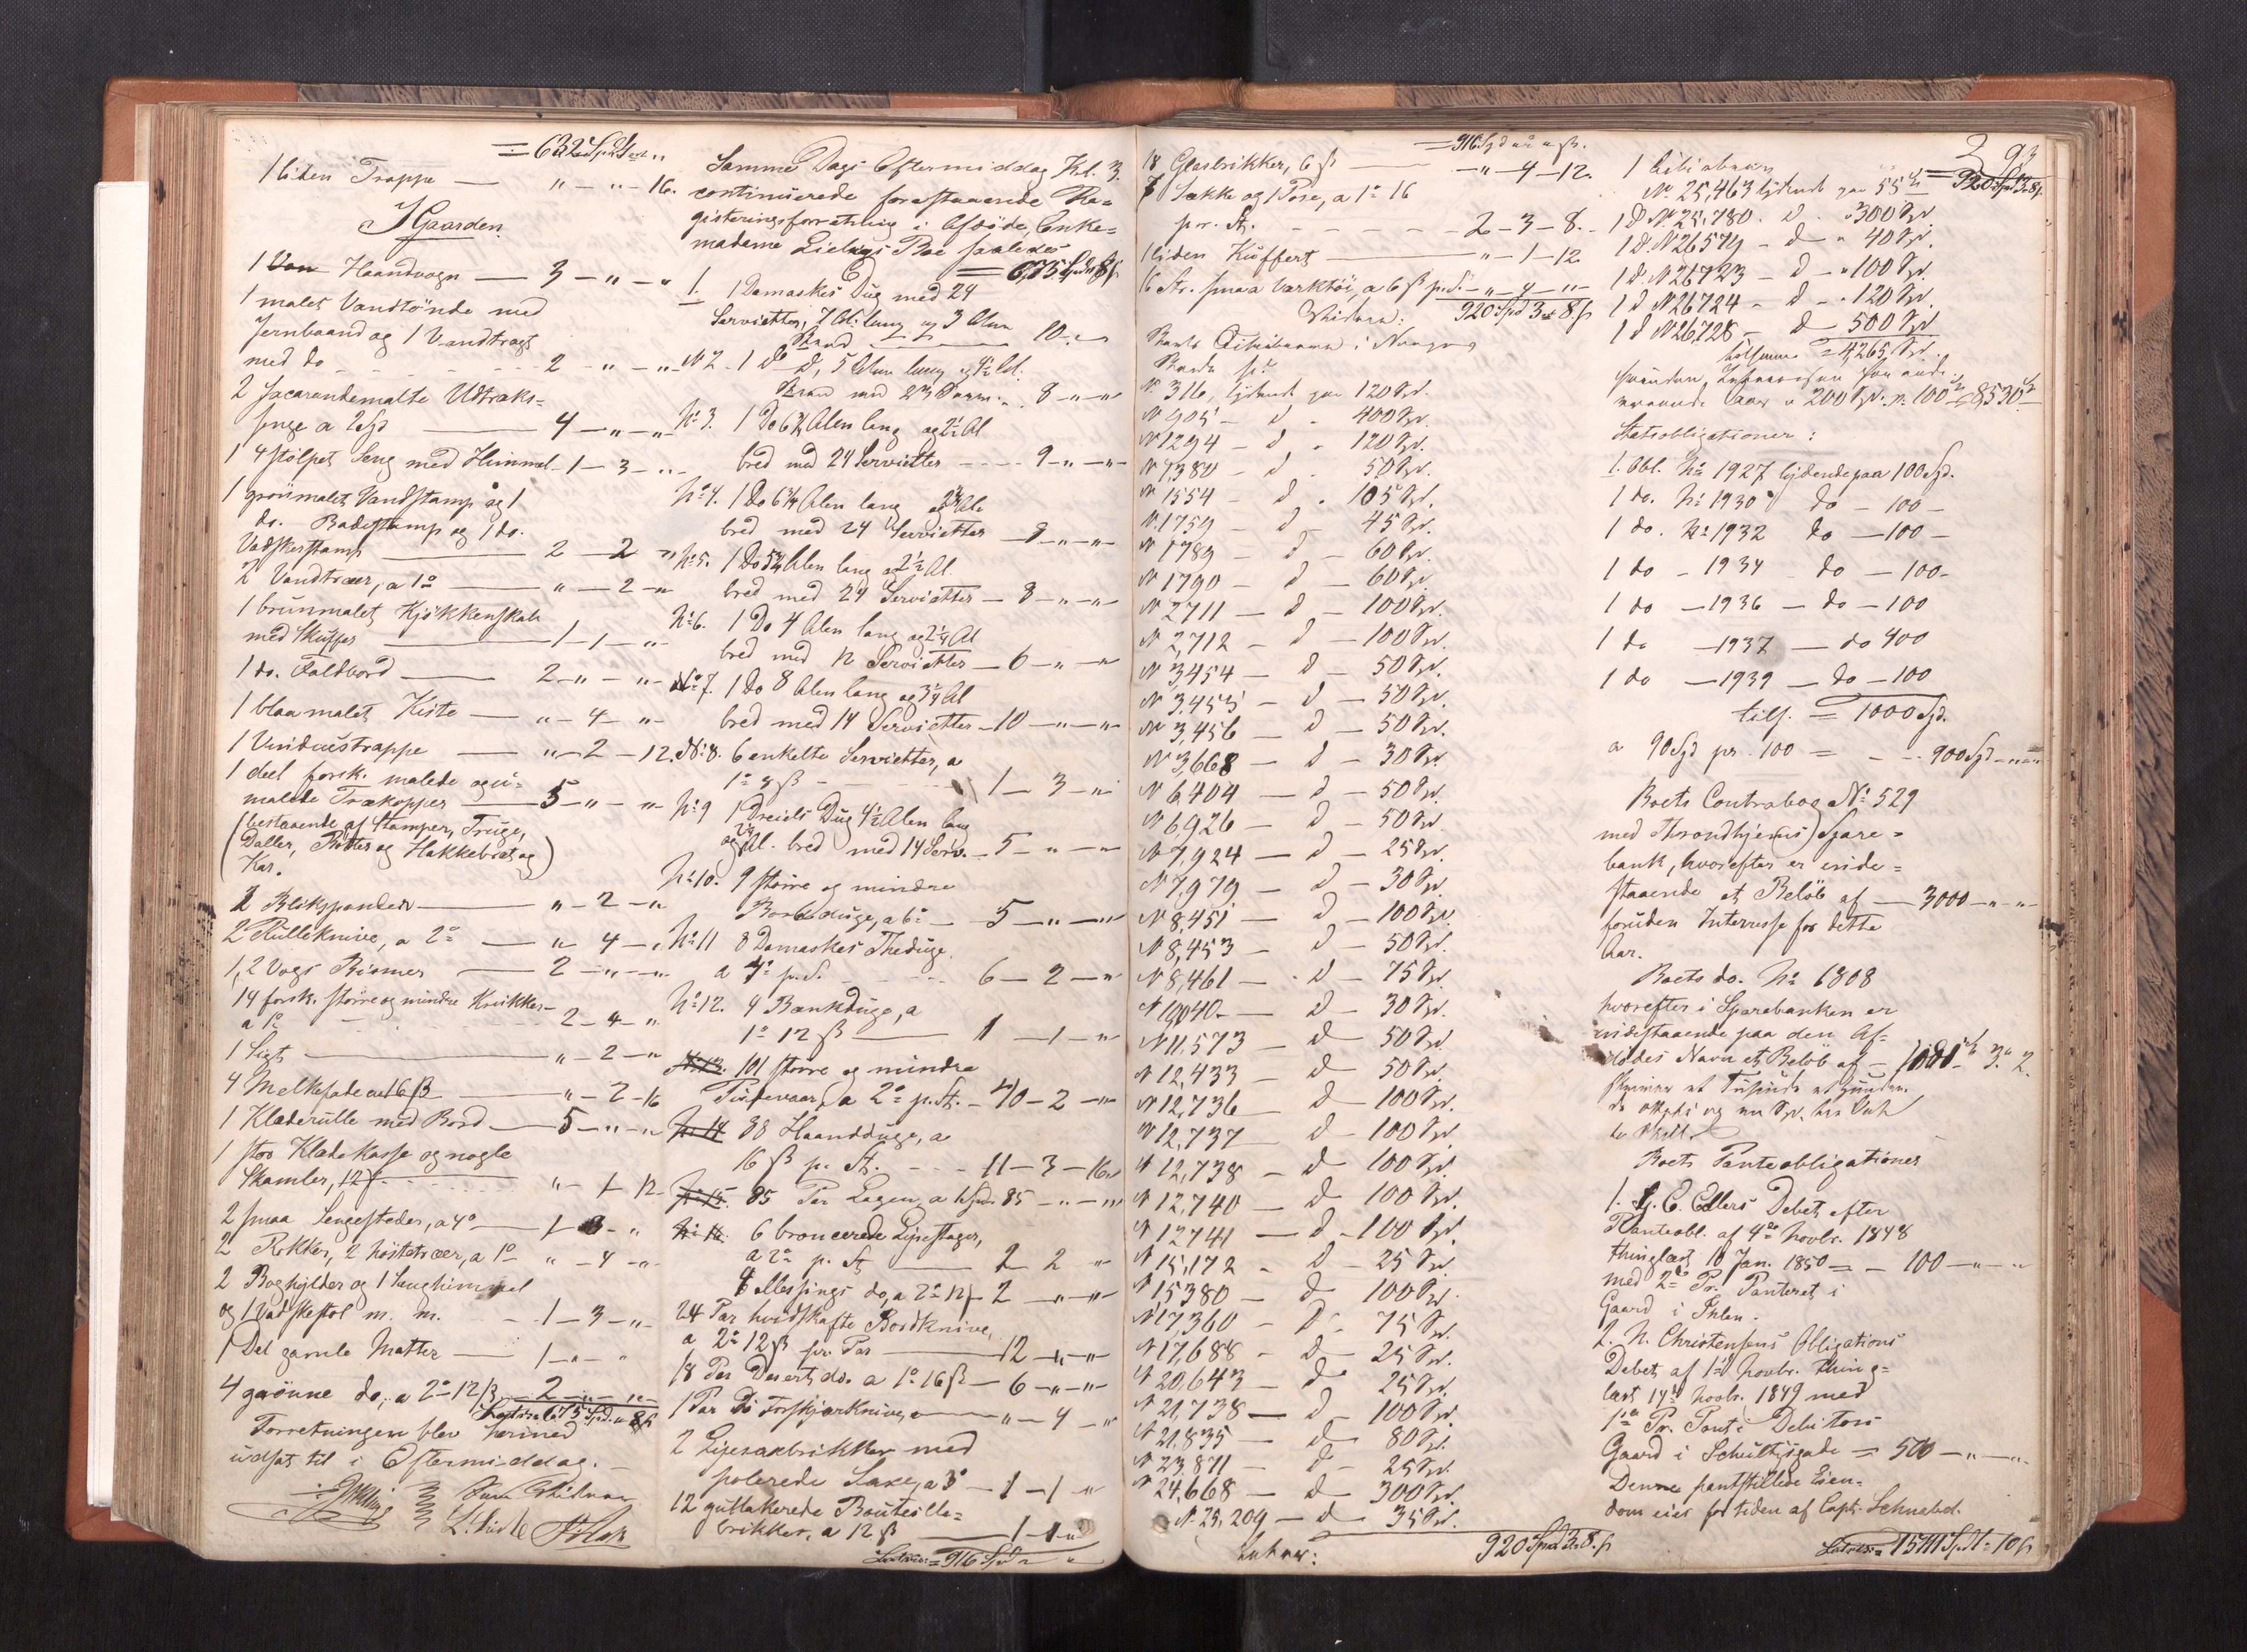 = 632 Spd 2
1 liden Trappe — " — " — 16.
I Gaarden.
1 Haandvogn — 3 — " — "
1 malet Vandtønde med
Jernbaand og 1 Vandtragt
med do - - - 2 - " - "
2 Jacarandemalte Udtræks=
senge a 2 Spd — 4 — " — "
1 4 stolpet Seng med Himmel - 1 — 3 — "
1 grönmalet Vandstamp og 1
do. Badestamp og 1 do.
Vadskerstamp — 2 — 2 "
2 Vandtræer, a 1 — " — 2 — "
1 brunmalet Kjökkenskab
med Skuffer — 1 — 1 — "
1 do. Faldbord — 2 — " — "
1 blaamalet Kiste — " — 4 — "
1 Vinduestrappe — " — 2 — 12.
1 deel forsk. malede og u=
malede Trækopper — 5 — " — "
(bestaaende af Stamper, Truge,
Daller, Bötter og Hakkebræt og
Kar.)
2 Blikspander — " — 2 — "
2 Rulleknive, a 2 — " 4 — "
1, 2 Vogs Bismer — 2 — " — "
14 forsk. större og mindre Krukker
a 1 - - - 2 - 4 - "
1 Sigt — " — 2 — "
4 Melkefade a 16 ß — " — 2 - 16
1 Klæderulle med Bord — 5 — " — "
1 stor Klædekasse og nogle
Skamler, 12 ß - - - " - 1 - 12
2 smaa Sengesteder, a 4 — 1 - 3 - "
2 Rokker, 2 höstetræer, a 1 — " — 4 — "
2 Boghylder og 1 Senghimmel
og 1 Vadskestol m. m. - 1 — 3 — "
1 Del gamle Matter — 1 — " — "
4 grönne do, a 2 12 ß — 2 — " — "
Latus = 675 Spd " 8 ß
Forretningen blev hermed
udsat til i Eftermiddag. —
Samme Dags Eftermiddag Kl. 3.
continuerede forestaaende Re=
gisteringsforretning i Afdöde, Enke=
madame Boe saaledes
= 675 Spd " 8 ß
1. 1 Damaskes Dug med 24
Servietter, 7 Al. lang og 3 Alen
Bred — 10 - "
No 2. 1 do d, 5 Alen lang og 4½ Al.
Bred med 23 - 8 — " — "
No 3. 1 Do 6¾ Alen lang og 2½ Al
bred med 24 Servietter - - - 9 - " — "
No 4. 1 Do 6¾ Alen lang og 2¾ Al.
bred med 24 Servietter — 8 — " — "
No 5. 1 Do 5¾ Alen lang og 2½ Al.
bred med 24 Servietter — 8 — " — "
No 6. 1 Do 4 Alen lang og 2¼ Al
bred med 12 Servietter — 6 — " — "
No 7. 1 Do 8 Alen lang og 3¼ Al
bred med 14 Servietter — 10 — " — "
No 8. 6 enkelte Servietter, a
1 ß - 1 — 3 — "
No 9 1 Dreiels Dug 4½ Alen lang
og Al. bred med 14 Serv. — 5 — " — "
No 10. 9 större og mindre
Bordduge, a — 5 — " — "
No 11 8 Damaskes Theduge
a 4 p. S. - - 6 — 2 — "
No 12. 4 Bænkduge, a
1 12 ß — 1 — 1 — "
No 13. 101 större og mindre
Pudevaar, a 2 p. St. — 40 — 2 — "
No 14 88 Haandduge, a
16 ß p. St. - - - 11 — 3 — 16
No 15. 85 Par Lagen, a 1 Spd. 85 — " — "
No 16. 6 broncerede Lysestager,
a 2 p. St — 2 2 "
4 Messings do, a 2 12 ß 2 — " — "
24 Par hvidskafte Bordknive,
a 2 12 ß pr. Par — 12 — " — "
18 Par Desert do. a 1 16 ß — 6 — " — "
1 Par Do Forskjærknive — " — 4 — "
2 Lysesaxbrikker med
polerede Saxe, a 3 — 1 — 1 — "
12 gullakerede Bouteille=
brikker, a 12 ß — 1 — 1 — "
Latus = 916 Spd " "
= 916 Spd " " ß.
18 Glasbrikker, 6 ß — " - 4 — 12.
7 Sække og 1 Pose, a 1 16
pr. St. - - - - 2 — 3 — 8.
1 liden Kuffert — " — 1 — 12
16 St. smaa Værktöi, a 6 ß p. S. — " — 4 — "
Videre: 920 Spd 3 8 ß
i Norges
N. 316, lydende paa 120 Spd.
N 905 — d - 400 Spd.
N 1294 — d - 120 Spd.
N 1,384 — d - 50 Spd.
N 1554 — d - 105 Spd.
N. 1759 — d - 45 Spd.
N 1789 — d - 60 Spd.
N 1790 — d - 60 Spd.
N 2711 — d — 100 Spd.
N 2,712 — d — 100 Spd.
N 3,454 — d — 50 Spd.
N 3,455 — d — 50 Spd.
N 3,456 — d — 50 Spd.
N 3,668 — d — 30 Spd.
N 6,404 — d — 50 Spd.
N 6,926 — d — 50 Spd.
N 7,924 — d — 25 Spd.
N 7,979 — d — 30 Spd.
N 8,451 — d — 100 Spd.
N 8,453 — d — 50 Spd.
N 8,461 — d — 75 Spd.
N 10,040 — d — 30 Spd.
N 11,573 — d — 50 Spd.
N 12,433 — d — 50 Spd.
N 12,736 — d — 100 Spd.
N 12,737 — d — 100 Spd.
N 12,738 — d — 100 Spd.
N 12,740 — d — 100 Spd.
N 12741 — d — 100 Spd.
N 15,172 — d — 25 Spd.
N 15380 — d — 100 Spd.
N 17,360 — D — 75 Spd.
N 17,688 — d — 25 Spd.
N 20,643 — d — 25 Spd.
N 21,738 — d — 100 Spd.
N 21,835 — d — 80 Spd.
N 23,871 — d — 25 Spd.
N 24,668 — d — 300 Spd.
N. 25,209 — d — 35 Spd.
Latus: 920 Spd 3 8 ß
293
= 920 Spd 3 8 ß
1
N. 25,463 lydende paa 55
1 d. N. 25,780. d. - 300 Spd.
1 d. N 26579 - d - 40 Spd.
1 d. N 26723 — d — 100 Spd.
1 d N 26724 - d - 120 Spd.
1 d N 26,728 — d — 500 Spd
tilsammen = 4,265 Spd.
a 200 Spd. pr. 100 = 8,530
Statsobligationer:
1. Obl. No 1927 lydende paa 100 Spd.
1 do. No 1930 do — 100 —
1 do. No 1932 do — 100 —
1 do - 1934 - do — 100 -
1 do — 1936 — do — 100
1 do — 1937 — do 400
1 do — 1939 — do — 100
tils. = 1000 Spd.
a 90 Spd pr. 100 = - - 900 Spd - " - "
Boets Contrabog No 529
med Throndhjems Spare=
bank, hvorefter er inde=
staaende et Belöb af — 3000 — " — "
foruden Interesse for dette
Aar.
Boets do. No 6808
hvorefter i Sparebanken er
indestaaende paa den Af=
dödes Navn et Belöb af — 3. 2.
skriver et Tusinde et hundre=
de otteti og en Spd. tre Ort
to Skill.
Boets Panteobligationer
1. C. Ellers Debet efter
Panteobl. af 4de Novbr. 1848
thinglæst 10 Jan. 1850 = — 100 — " — "
med 2den Pr. Panteret i
Gaard i Ihlen.
2. N. Christensens Obligations
Debet af 1ste Novbr. thing=
læst 14de Novbr. 1849 med
1ste Pr. Pant i Debitors
Gaard i Schultzgade = 500 — " — "
Denne pantstillede Eien=
dom eies for tiden af Capt. Schnabel.
Latus = 15111 Spd 1 " 10 ß